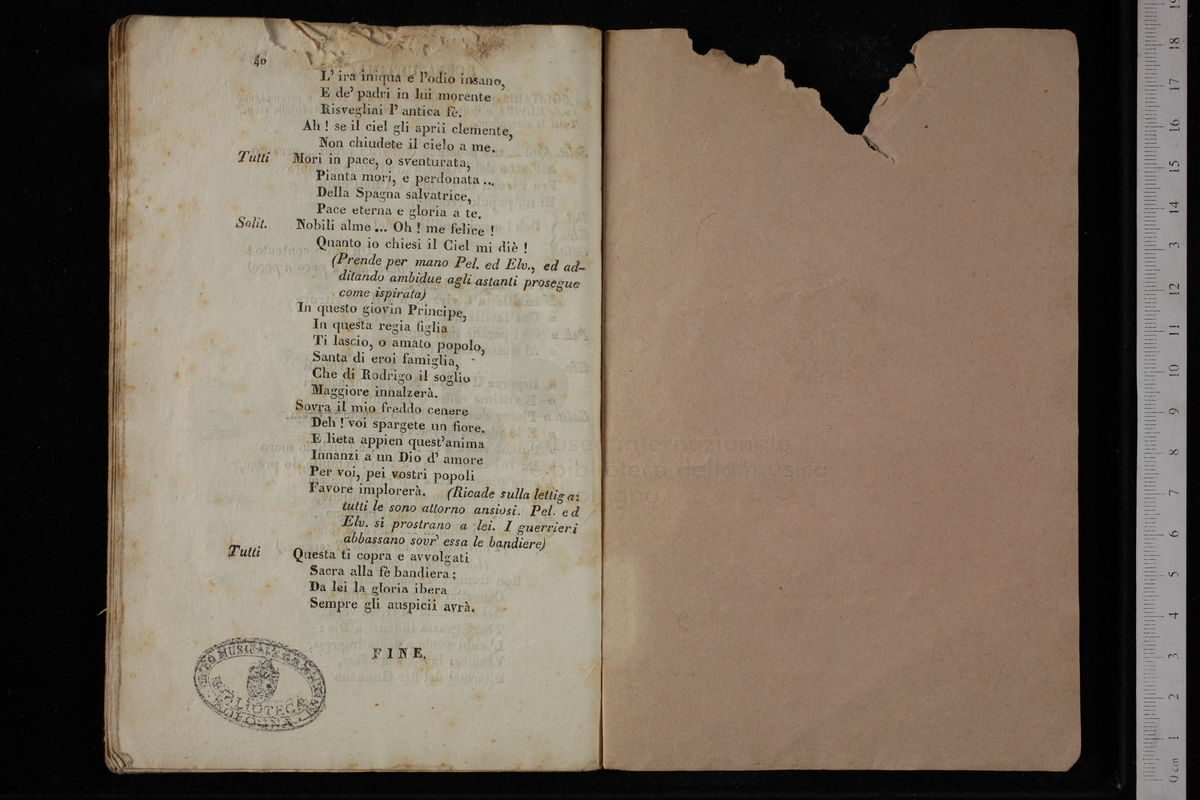 40
L' ira iniqua e l'odio insano,
E de' padri in lui morente
Risvegliai l' antica fè.
Ah ! se il ciel gli aprii clemente,
Non chiudete il cielo a me.
Tutti Mori in pace, o sventurata,
Pianta mori, e perdonata ...
Della Spagna salvatrice,
Pace eterna e gloria a te.
Solit. Nobili alme ... Oh ! me felice !
Quanto io chiesi il Ciel mi diè !
(Prende per mano Pel. ed Elv., ed ad-
ditando ambidue agli astanti prosegue
come ispirata)
In questo giovin Principe,
In questa regia figlia
Ti lascio, o amato popolo,
Santa di eroi famiglia,
Che di Rodrigo il soglio
Maggiore innalzerà.
Sovra il mio freddo cenere
Deh ! voi spargete un fiore.
E lieta appien quest'anima
Innanzi a un Dio d' amore
Per voi, pei vostri popoli
Favore implorerà. (Ricade sulla lettiga:
tutti le sono attorno ansiosi. Pel. ed
Elv. si prostrano a lei. I guerrieri
abbassano sovr' essa le bandiere)
Tutti Questa ti copra e avvolgati
Sacra alla fè bandiera :
Da lei la gloria ibera
Sempre gli auspicii avrà.
FINE.
MUSICALE
BIBLIOTECA
BOLOGNA